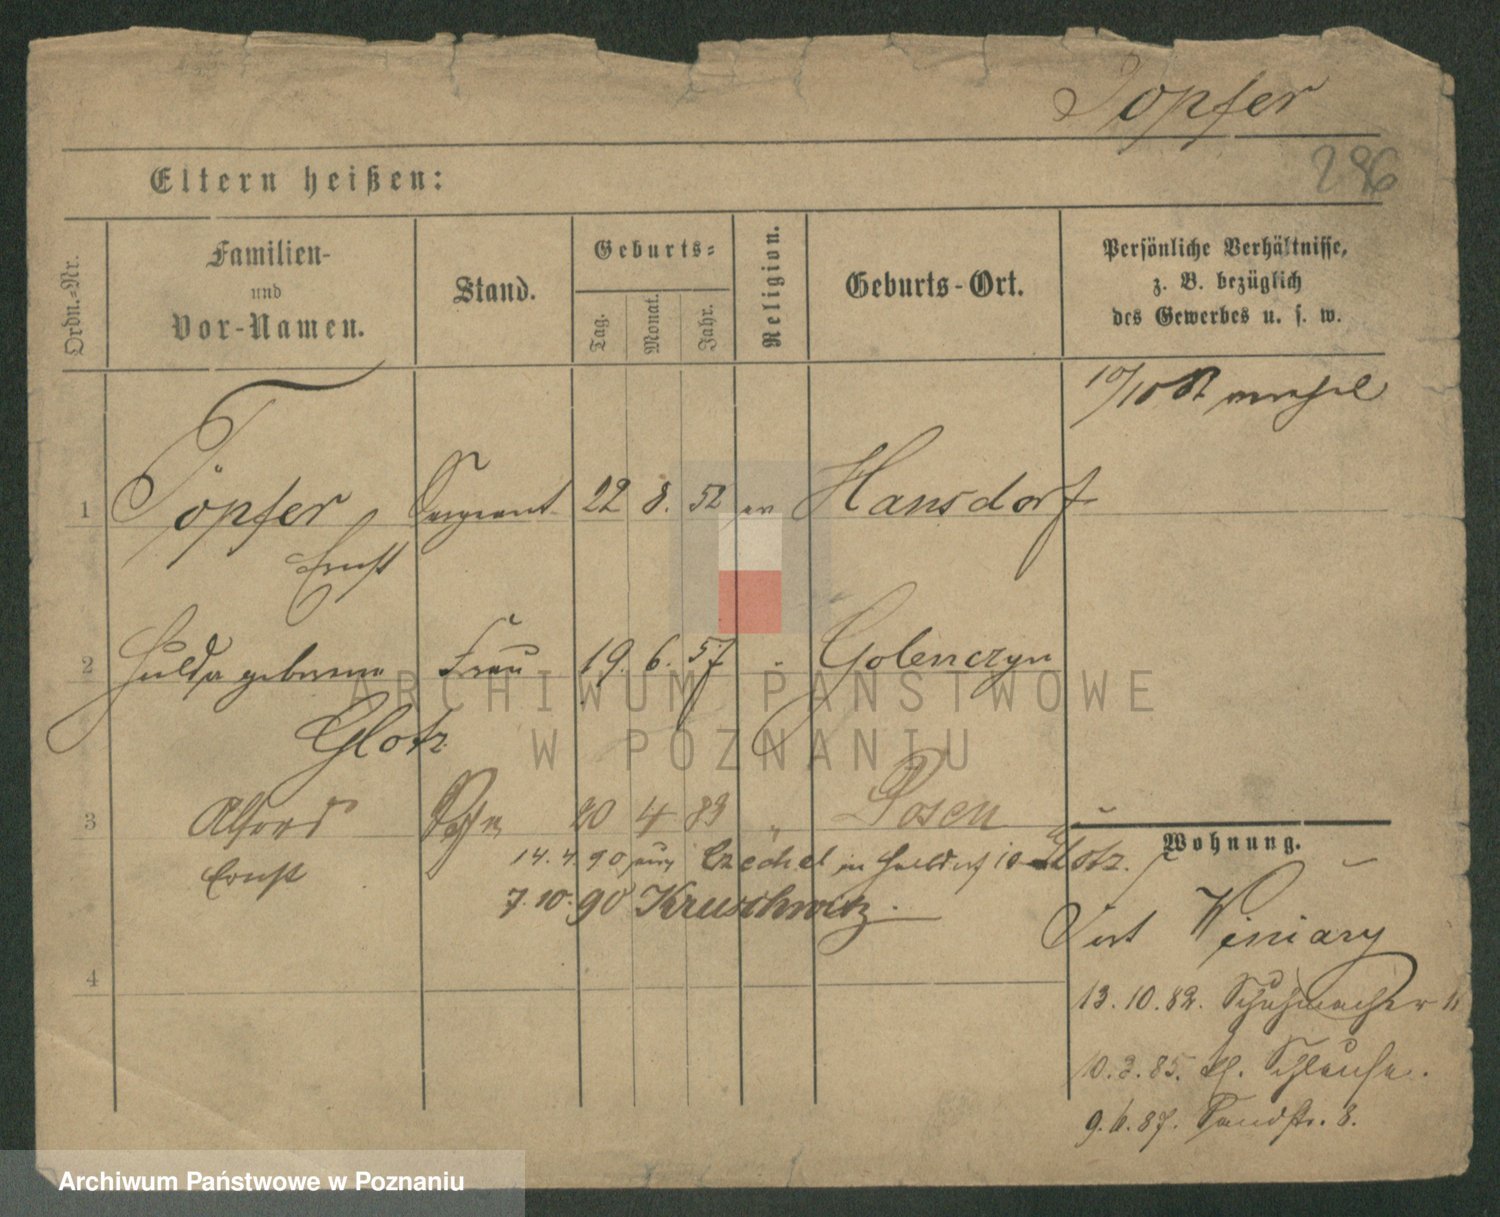 Töpfer
296
Eltern heißen:
Ordn.=Nr.
Familien-
und
Vor-Namen.
Stand.
Geburts=
Tag.
Monat.
Jahr.
Religion.
Geburts-Ort.
Persönliche Verhältnisse,
z. B. bezüglich
des Gewerbes u. s. w.
10/10 81
1 Töpfer Sergeant 22 8. 52 ev Hansdorf
Ernst
2 Hulda geborene Frau 19. 6. 57 " Golenczyn
Glotz
3 Alfred Sohn 20 4 89 " Posen
Ernst
14. 4. 90 aus Czechel in
7. 10. 90 Kruschwitz.
4
Wohnung.
Fort Winiary
13. 10. 82. Schuhmacher
10. 3. 85. Schleuse.
9. 6. 87. Sandstr. 8.
ARCHIWUM PAŃSTWOWE
W POZNANIU
Archiwum Państwowe w Poznaniu